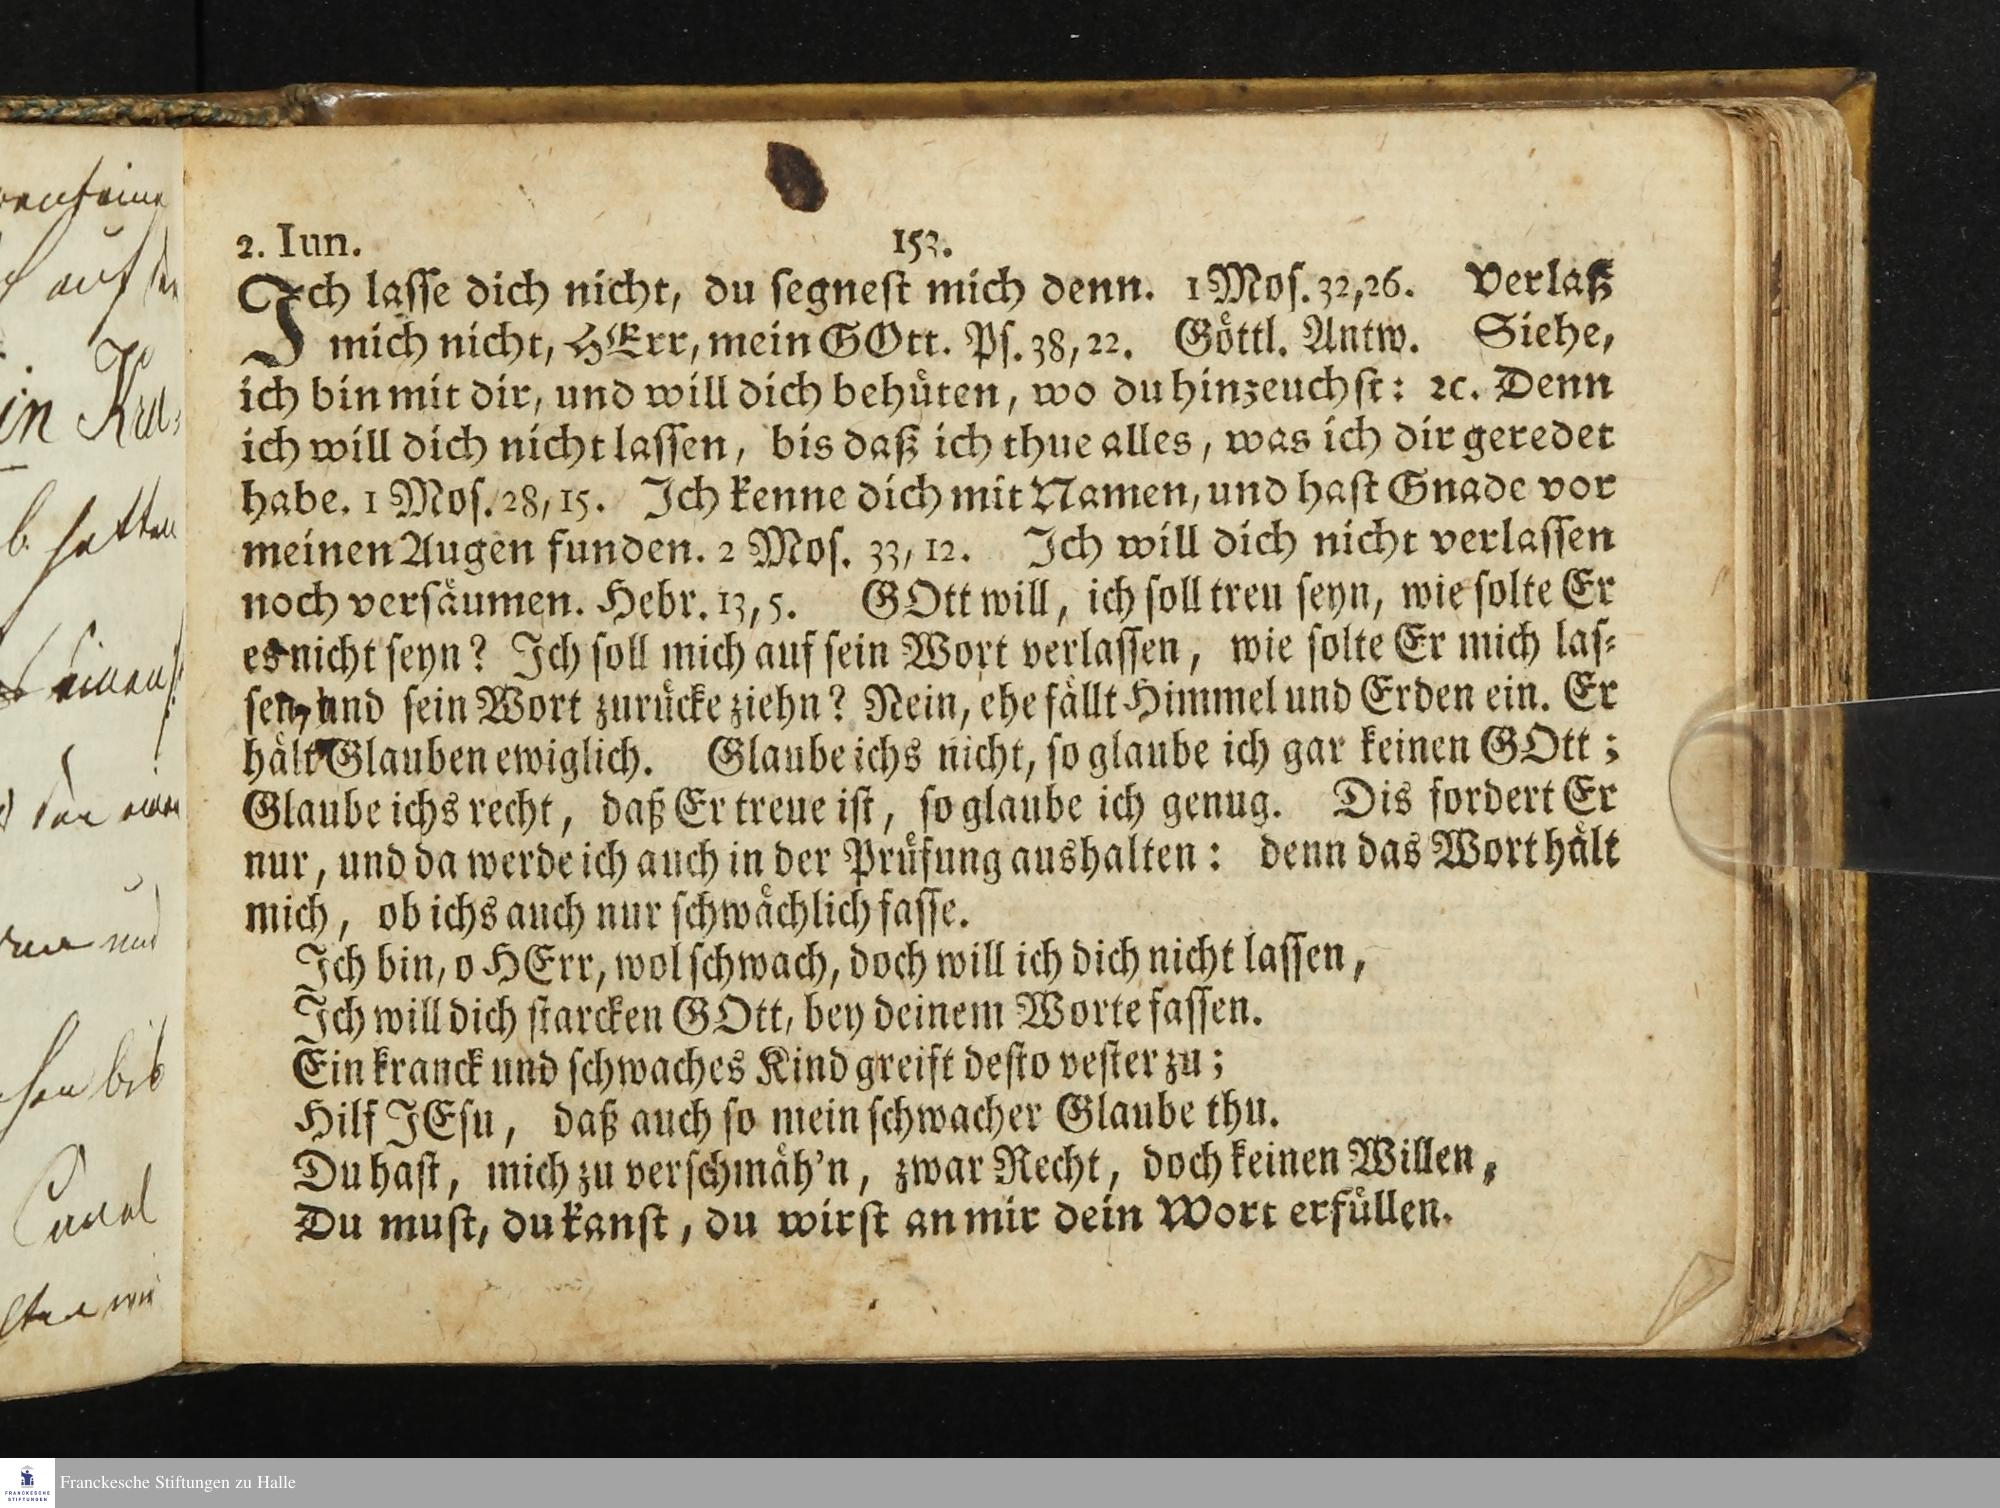 2. Iun.
153.
Ich lasse dich nicht, du segnest mich denn. 1 Mos. 32,26. Verlaß
mich nicht, HErr, mein GOtt. Ps. 38, 22. Göttl. Antw. Siehe,
ich bin mit dir, und will dich behüten, wo du hinzeuchst: ꝛc. Denn
ich will dich nicht lassen, bis daß ich thue alles, was ich dir geredet
habe. 1 Mos. 28, 15. Ich kenne dich mit Namen, und hast Gnade vor
meinen Augen funden. 2 Mos. 33, 12. Ich will dich nicht verlassen
noch versäumen. Hebr. 13, 5. GOtt will, ich soll treu seyn, wie solte Er
es nicht seyn? Ich soll mich auf sein Wort verlassen, wie solte Er mich las-
sen, und sein Wort zurücke ziehn? Nein, ehe fällt Himmel und Erden ein. Er
hält Glauben ewiglich. Glaube ichs nicht, so glaube ich gar keinen GOtt;
Glaube ichs recht, daß Er treue ist, so glaube ich genug. Dis fordert Er
nur, und da werde ich auch in der Prüfung aushalten: denn das Wort hält
mich, ob ichs auch nur schwächlich fasse.
Ich bin, o HErr, wol schwach, doch will ich dich nicht lassen,
Ich will dich starcken GOtt, bey deinem Worte fassen.
Ein kranck und schwaches Kind greift desto vester zu;
Hilf JEsu, daß auch so mein schwacher Glaube thu.
Du hast, mich zu verschmäh'n, zwar Recht, doch keinen Willen,
Du must, du kanst, du wirst an mir dein Wort erfüllen.
auf
in
hatten
einen
und
bis
Canal
wir
FRANCKESCHE
STIFTUNGEN
Franckesche Stiftungen zu Halle